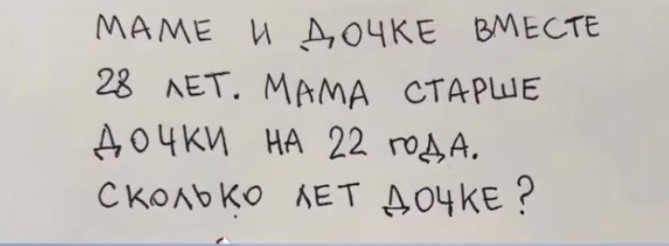 МАМЕ И ДОЧКЕ ВМЕСТЕ
28 ЛЕТ. МАМА СТАРШЕ
ДОЧКИ НА 22 ГОДА.
СКОЛЬКО ЛЕТ ДОЧКЕ?